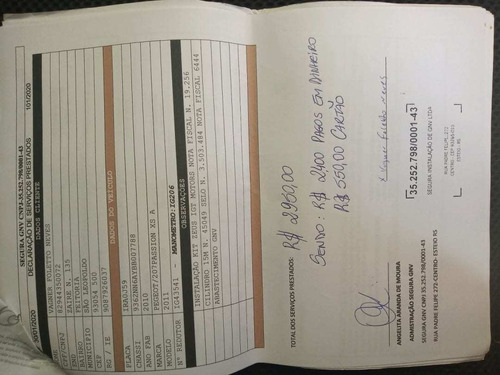 SEGURA GNV CNPJ-35.252.798/0001-43
DECLARAÇÃO DE SERVIÇOS PRESTADOS 101/2020
30/01/2020 DADOS CLIENTE
VAGNER COLETTO NEVES
CPF/CNPJ 82944350072
ZAIRE N. 135
BAIRRO FEITORIA
MUNICIPIO SÃO LEOPOLDO
CEP 93054 500
RG / IE 9087826037
DADOS DO VEICULO
PLACA IRA0J59
CHASSI 9362NN6AYBB007788
ANO FAB 2010
MARCA PEUGOT/207PASSION XS A
MODELO 2011
Nº REDUTOR IG43541 - MANOMETRO:IG206
OBSERVAÇÕES
INSTALAÇÃO KIT ZEUS IGT MOTORS NOTA FISCAL N. 19.256
CILINDRO 15M N. 45049 SELO N. 3.503.484 NOTA FISCAL 6444
ABASTECIMENTO GNV
TOTAL DOS SERVIÇOS PRESTADOS: R$ 2950,00
SENDO: R$ 2400 PAGOS EM DINHEIRO
R$ 550,00 CARTÃO
ANGELITA ARANDA DE MOURA
ADMISTRAÇÃO SEGURA GNV
SEGURA GNV CNPJ 35.252.798/0001-43
RUA PADRE FELIPE 272-CENTRO- ESTEIO RS
35.252.798/0001-43
SEGURA INSTALAÇÃO DE GNV LTDA
RUA PADRE FELIPE, 272